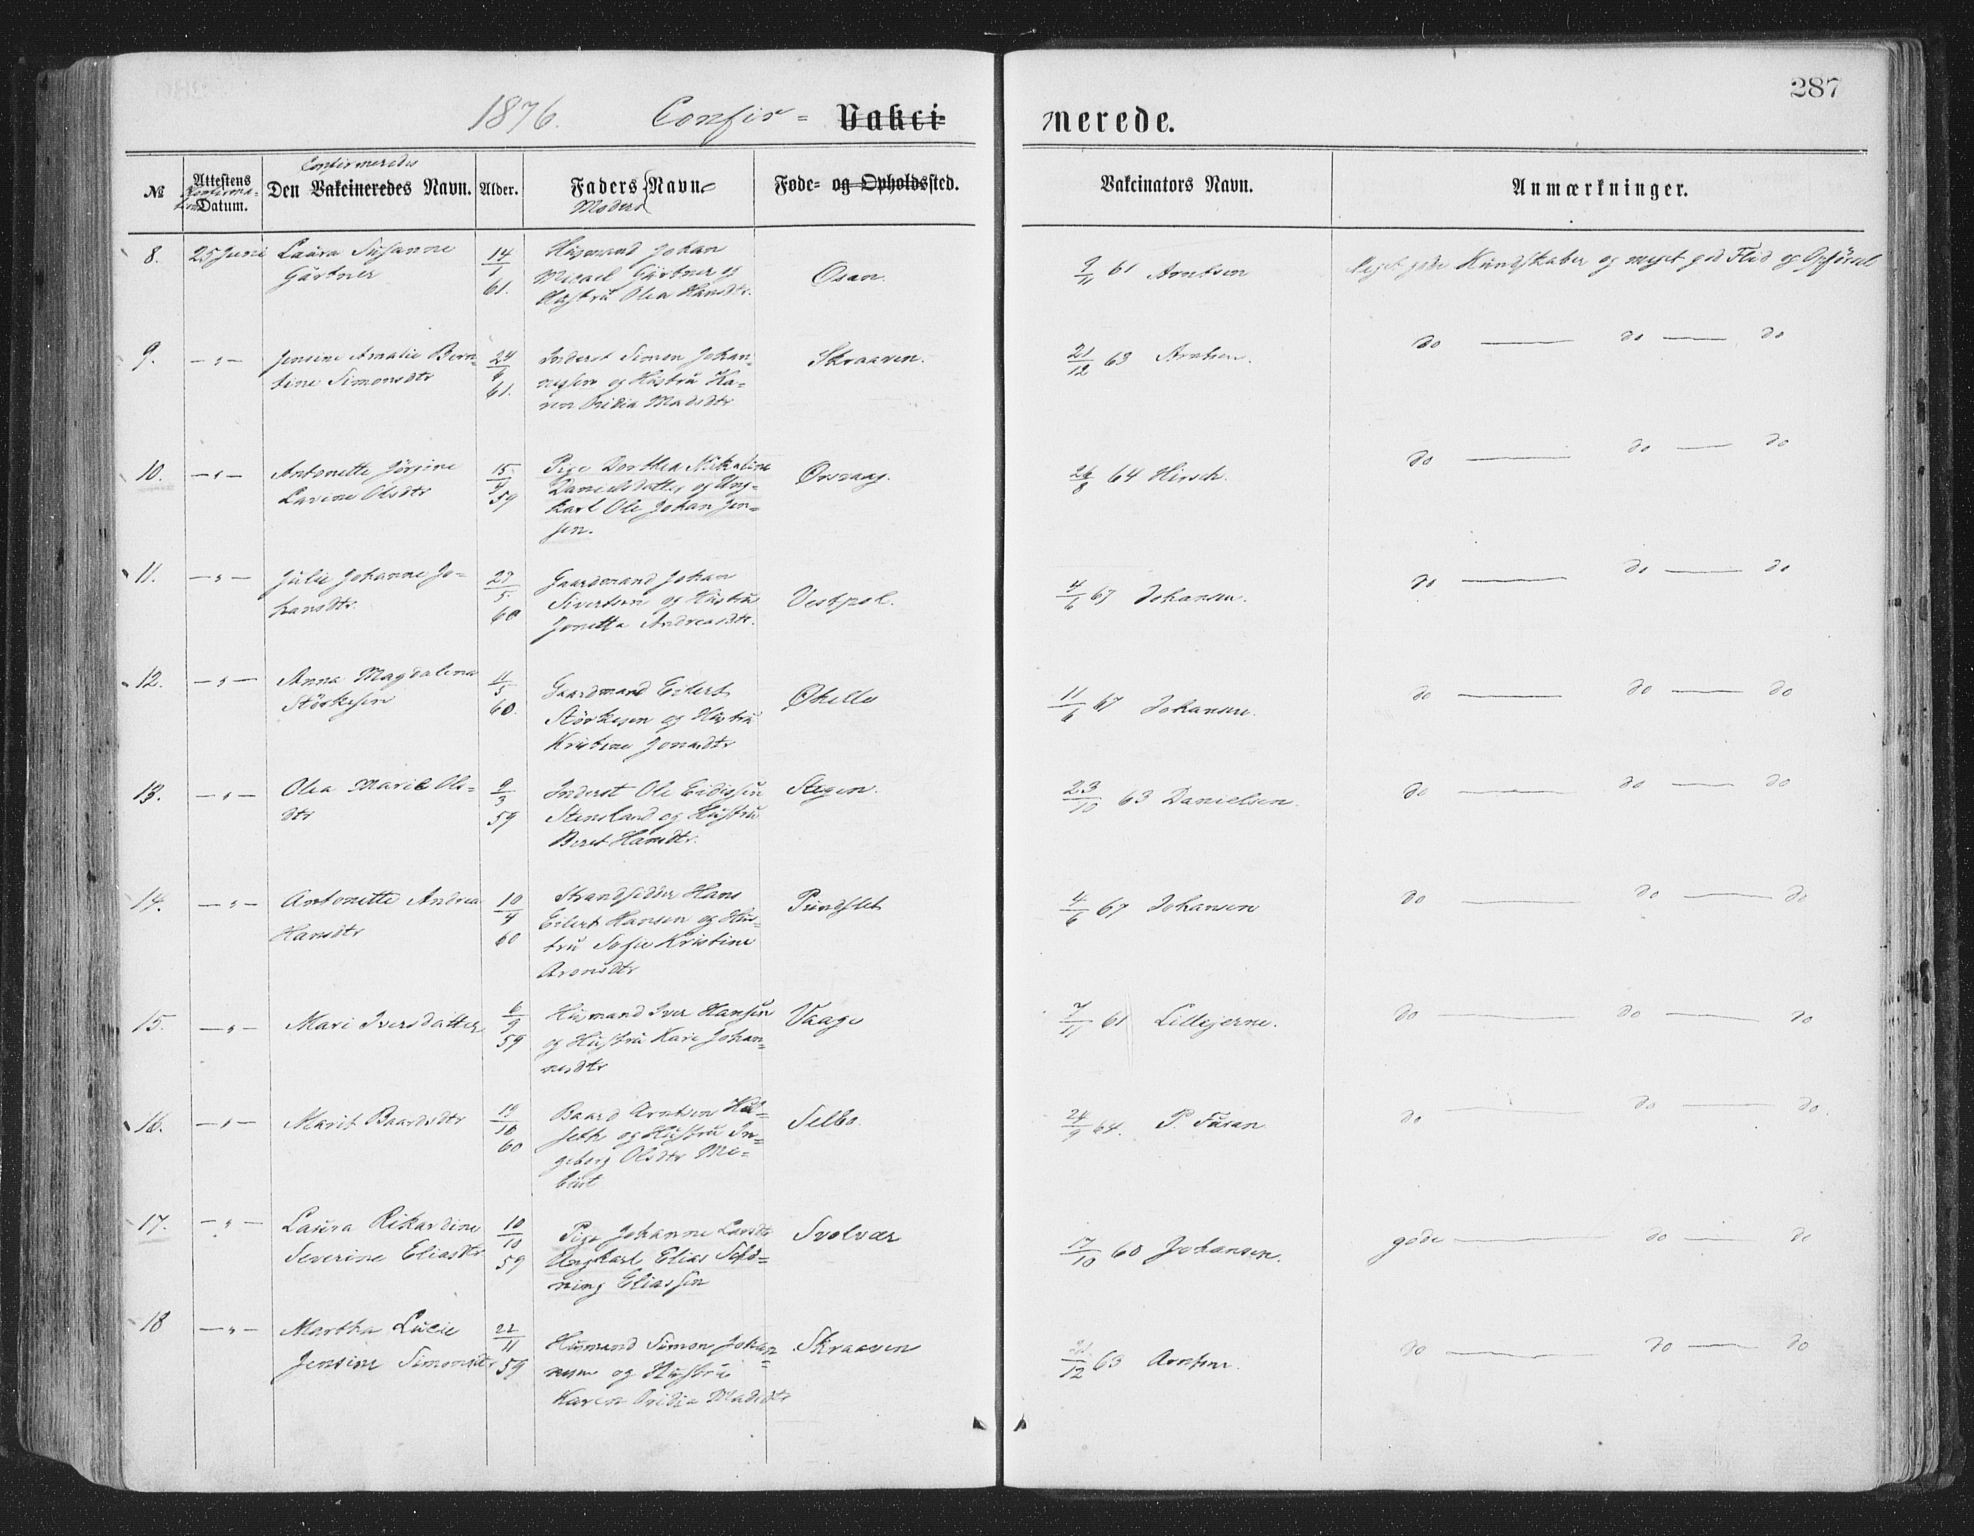 287
1876. Confir= Vakci nerede.
№
Attestens Datum.
Confirmeredes
Den Vakcineredes Navn.
Alder.
Faders Navn
Moders
Føde- og Opholdssted.
Vakcinators Navn.
Anmærkninger.
8. 25 Juni Laura Susanne 14 Husmand Johan
Gärtner 61. Micael Gärtner og Osan. 61 Arntsen Meget gode Kundskaber og meget god Flid og Opførsel
Hustru Olea Hansdtr.
9. — " — Jensine Amalie Bern= 24 Inderst Simon Johan= Skraaven. 21/12 63 Arntsen. do — do — do
tine Simonsdtr 61. nesen og Hustru Ka=
ren Madsdtr
10. — " — Antonette Jørgine 15 Pige Dorthea Nikoline Orsvaag. 26/8 64 Hirsch. do — do — do
Lavine Olsdtr 59 Danielsdatter og Ung=
karl Ole Johan Jen=
sen.
11. — " — Julie Johanne Jo= 23/5 Gaardmand Johan 4/6 67 Johansen. do — do — do
hansdtr. 60 Sivertsen og Hustru Vestpol.
Jonetta Andreasdtr.
12. — " — Anna Magdalena 4/5 Gaardmand Eilert Ohelle 11/6 67 Johansen. do — do — do
Störkesen 60. Störkesen og Hustru
Kristine Jonasdtr
13. — " — Olea Marie Ols= 9/3 Inderst Ole Stegen. 23/10 63 Danielsen. do — do — do
dtr 59 Stensland og Hustru
Beret Hansdtr.
14. — " — Antonette Andrea 10/4 Strandsidder Hans Pundslet 4/6 67 Johansen do — do — do
Hansdtr 60 Eilert Hansen og Hus=
tru Sofie Kristine
Aronsdtr
15. — " — Mari Iversdatter 6/9 Husmand Iver Hansen Vaage 7/11 61 Lillejerne. do — do — do
59 og Hustru Kari Johan=
nesdtr
16. — " — Marit Baardsdtr 19/10 Baard Arntsen Selbo. 24/9 64. P. Furan do — do — do.
60 seth og Hustru In=
geborg Olsdtr
17. — " — Laura Rikardine 10/10 Pige Johanne Larsdtr Svolvær 17/10 60 Johansen. gode — do — do
Severine Eliasdtr 59 Ungkarl Elias
ning Eliassen
18 — " — Martha Lucie 22/11 Husmand Simon Johan= Skraaven 21/12 63 Arntsen. do — do — do
Jensine Simonsdtr 59 nesen og Hustru
Karen Madsdtr